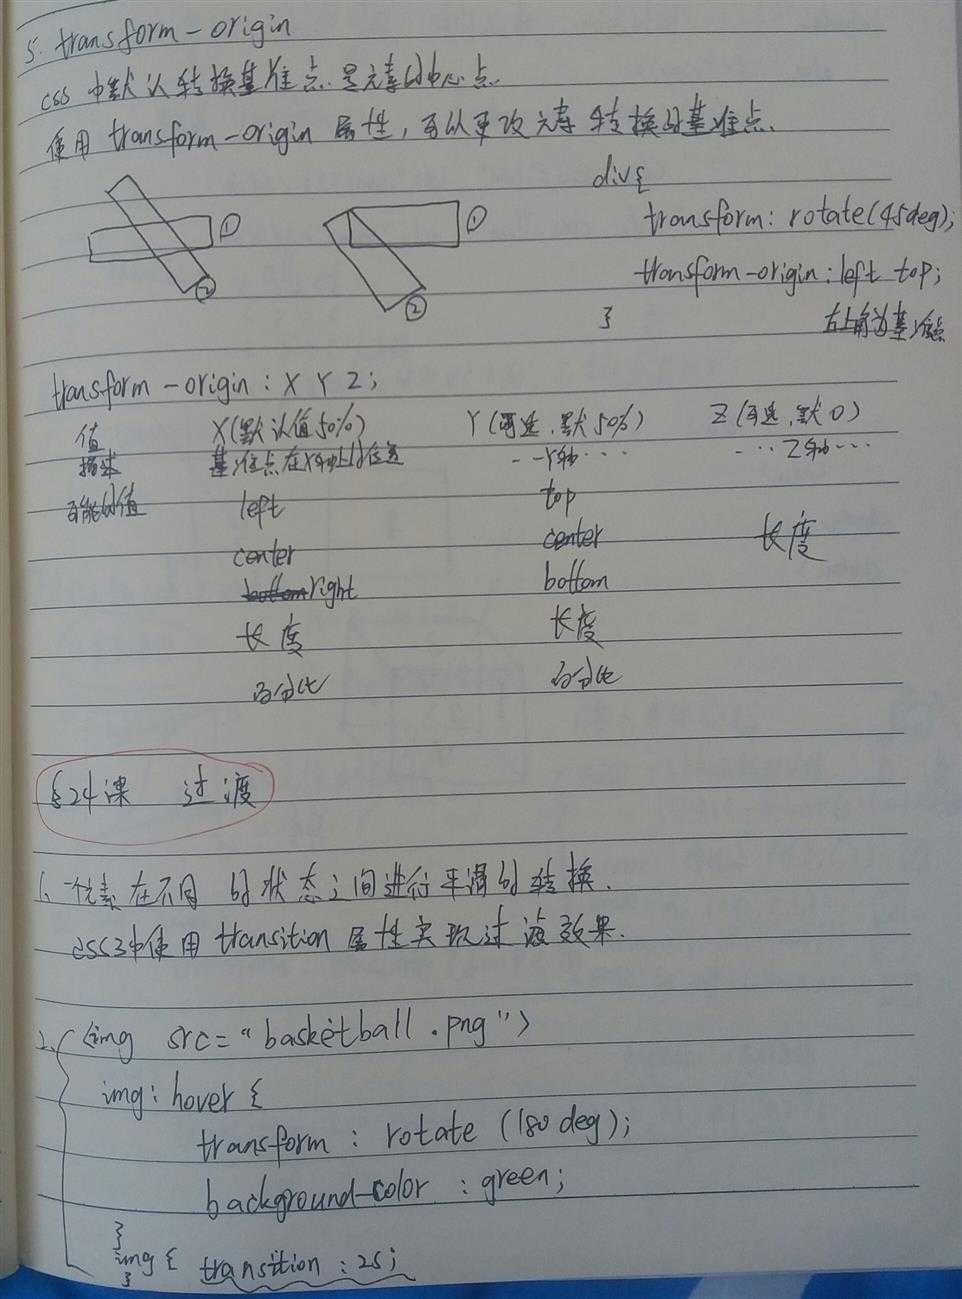 5. transform-origin
css中默认转换基准点是元素的中心点.
使用 transform-origin 属性，可以更改元素转换的基准点.
div{
① ①
transform: rotate(45deg);
② ②
transform-origin: left top;
}
右上角为基准点
transform-origin: X Y Z;
值 X(默认值50%) Y(可选，默50%) Z(可选，默0)
描述 基准点在X轴上的位置 --Y轴··· ···Z轴···
可能的值 left top
center center 长度
right bottom
长度 长度
百分比 百分比
§24课 过渡
1. 一个元素在不同的状态之间进行平滑的转换.
css3中使用 transition 属性实现过渡效果.
2. <img src="basketball.png">
img: hover {
transform: rotate (180deg);
background-color: green;
}
img { transition: 2s;
}